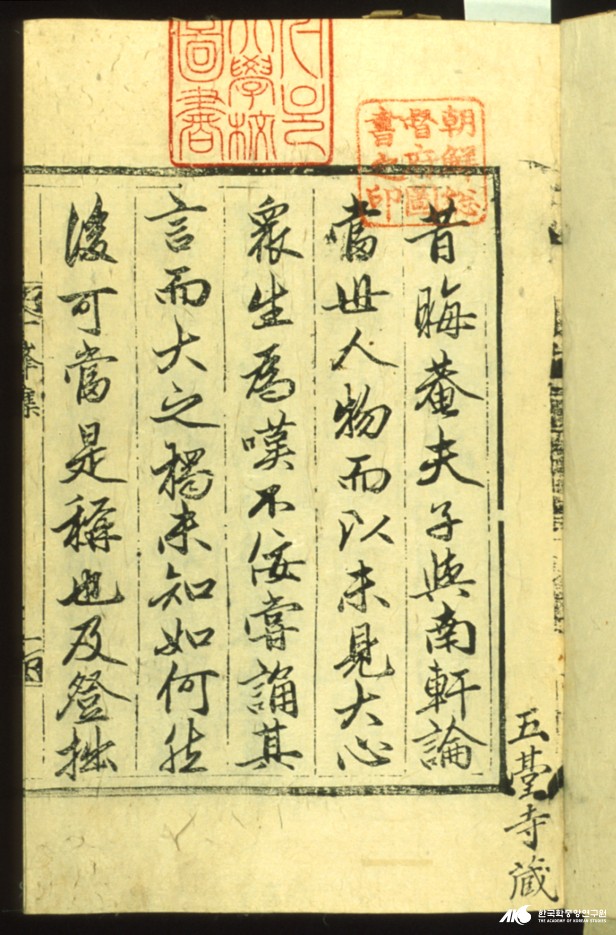 서울
大學校
圖書
朝鮮総
督府圖
書之印
昔晦菴夫子與南軒論
當世人物而以未見大心
衆生爲嘆不佞嘗誦其
言而大之獨未知如何然
後可當是稱也及登拙
五臺寺藏
한국학중앙연구원
THE ACADEMY OF KOREAN STUDIES